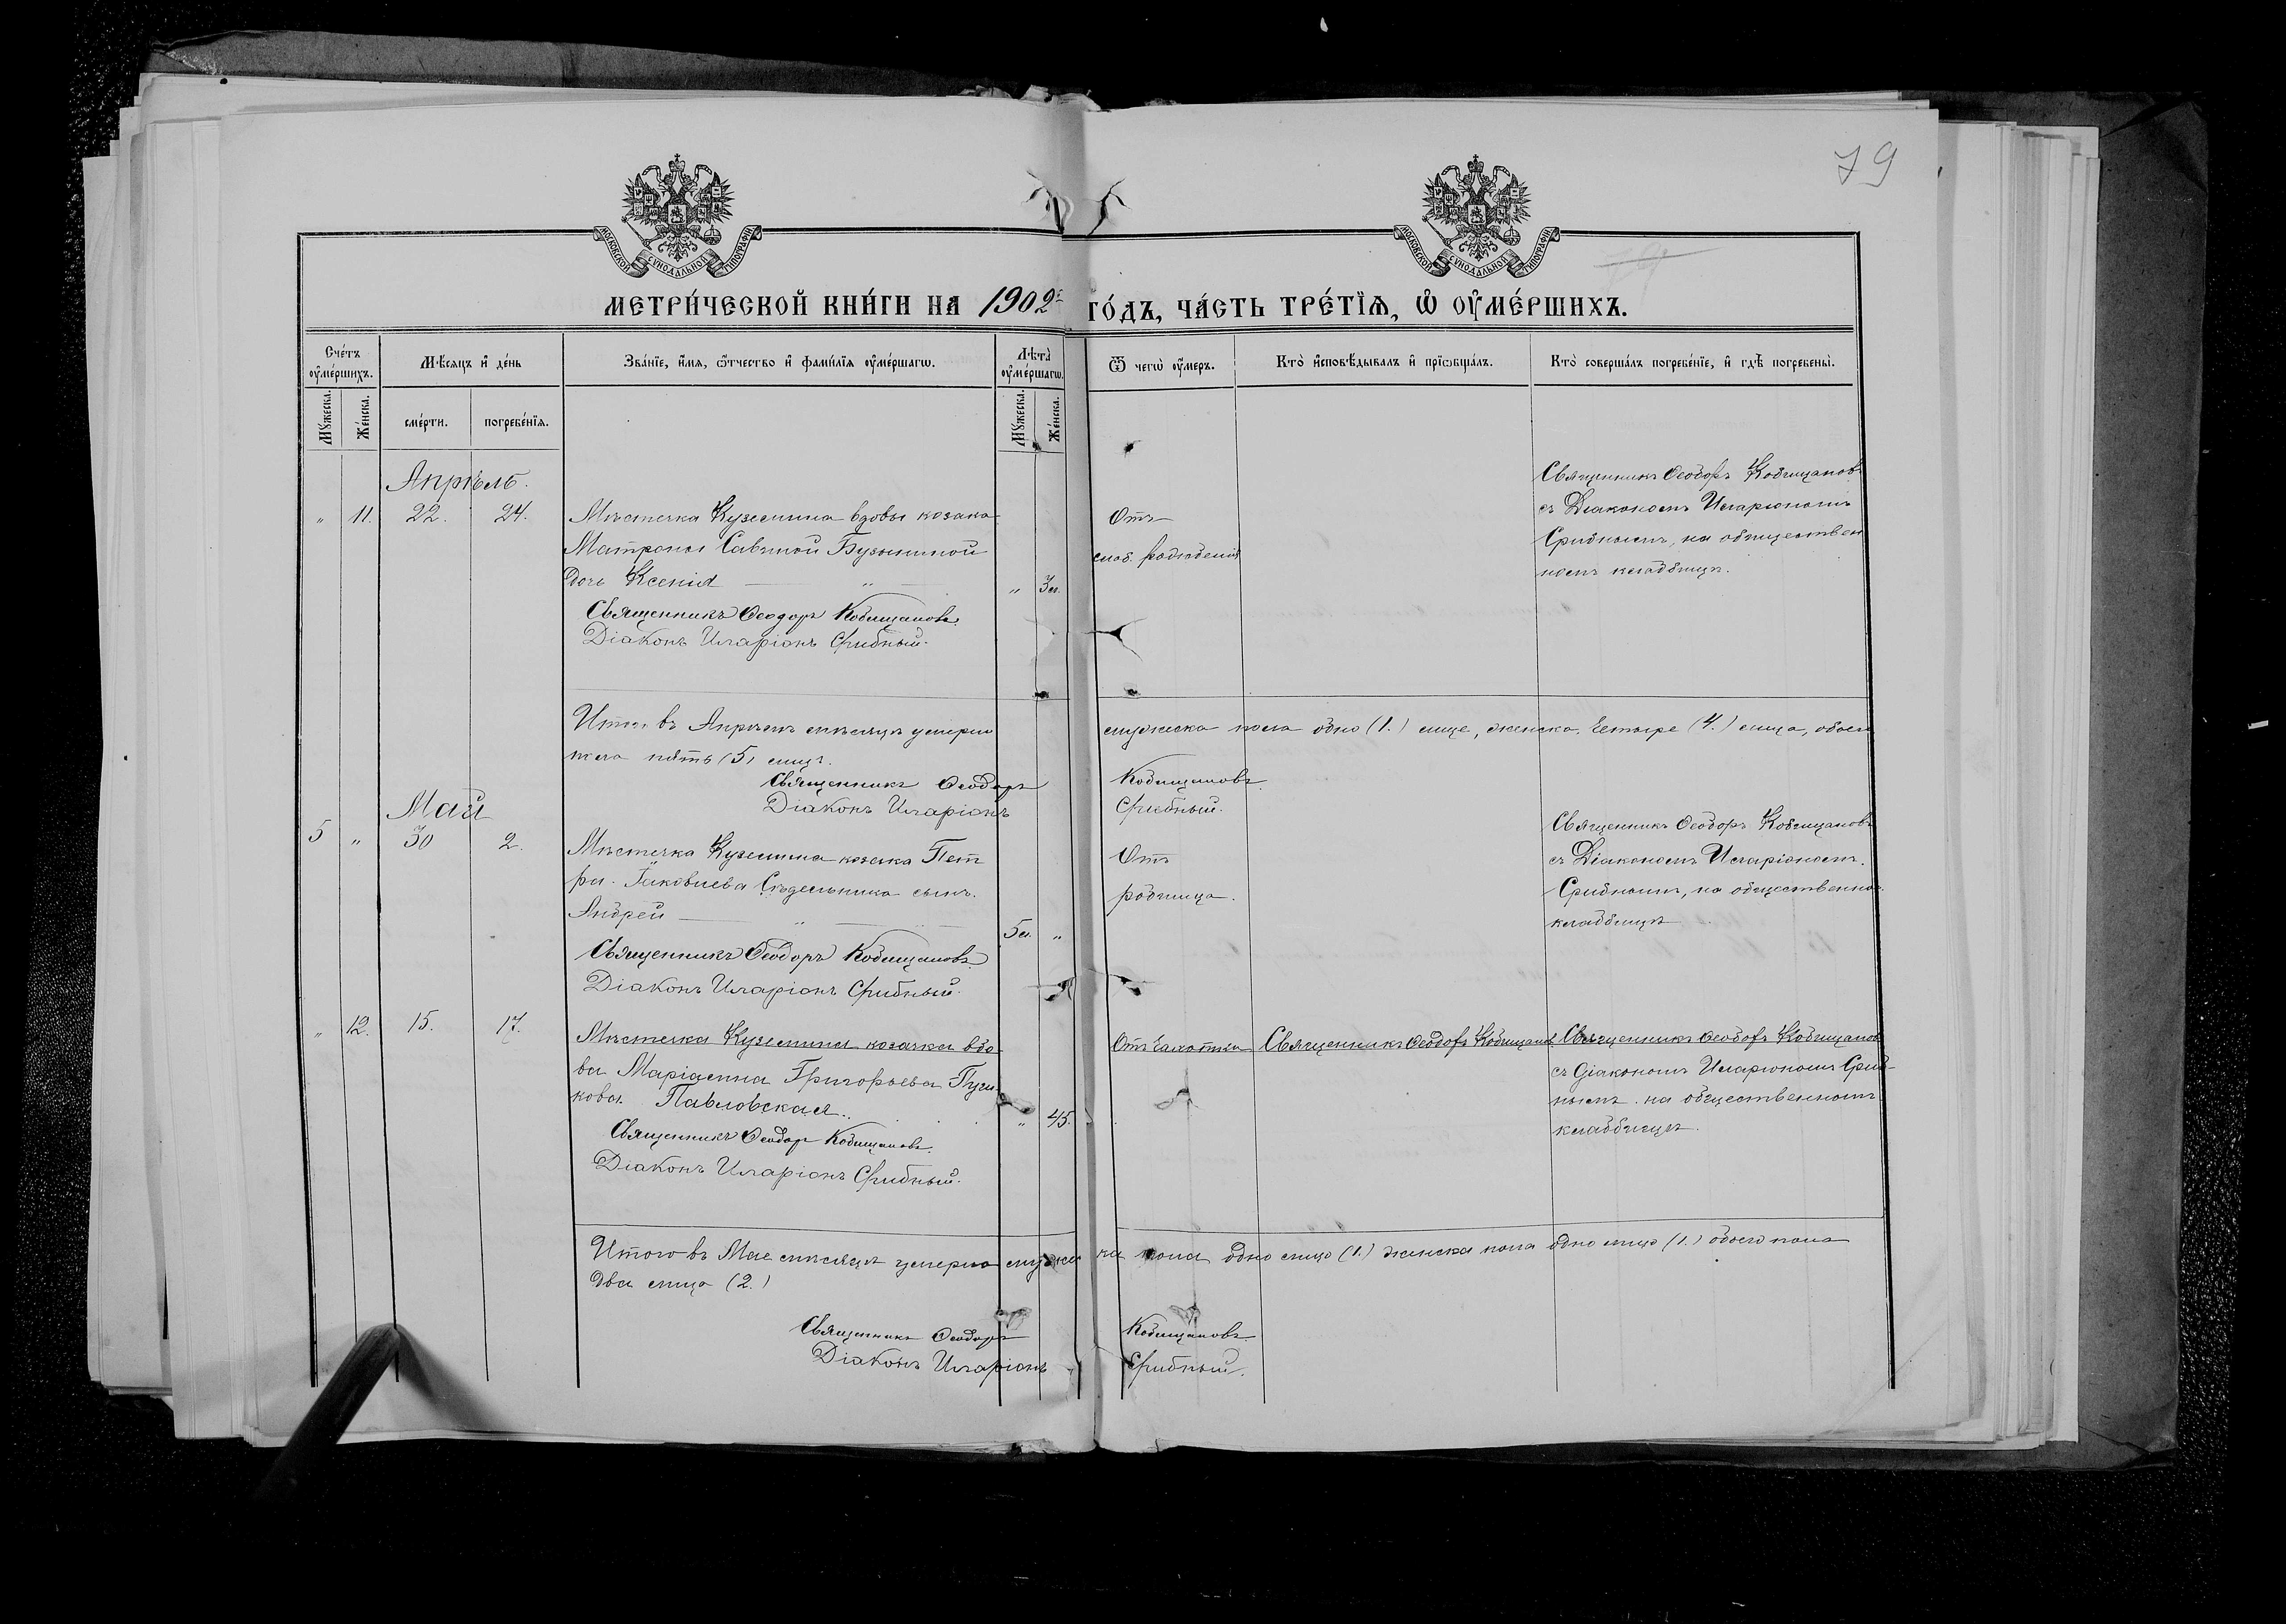 79
МОСКОВСКОЙ СѴНОДАЛЬНОЙ ТИПОГРАФІИ
МОСКОВСКОЙ СѴНОДАЛЬНОЙ ТИПОГРАФІИ
МЕТРИ́ЧЕСКОЙ КНИ́ГИ НА 1902 ГО́ДЪ, ЧА́СТЬ ТРЕ́ТЇѦ, Ѡ҆ ОУ҆МЕ́РШИХЪ.
Сче́тъ оу҆ме́ршихъ.
Мѣсяцъ и҆ де́нь
Зва́нїе, и҆́мя, ѻ҆́тчество и҆ фами́лїя оу҆ме́ршагѡ.
Лѣта̀ оу҆ме́ршагѡ.
Ѿ чегѡ̀ оу҆́меръ.
Кто̀ и҆сповѣ́дывалъ и҆ прїѡбща́лъ.
Кто̀ соверша́лъ погребе́нїе, и҆ гдѣ̀ погребены̀.
Мꙋ́жеска.
Же́нска.
сме́рти.
погребе́нїя.
Мꙋ́жеска.
Же́нска.
Апрѣль.
" 11. 22. 24.
Мѣстечка Куземина вдовы козака
Матроны Савиной
дочь Ксенія
" 3
Священникъ Ѳеодоръ Кобищановъ.
Діаконъ Иларіонъ Срибный.
Отъ
Священникъ Ѳеодоръ Кобищановъ
съ Діакономъ Иларіономъ
Срибнымъ, на обществен
номъ кладбищѣ.
Итого въ Апрѣлѣ мѣсяцѣ умерло мужеска пола одно (1.) лице, женска четыре (4.) лица, обоего
пола пять (5) лицъ.
Священникъ Ѳеодоръ Кобищановъ
Діаконъ Иларіонъ Срибный.
Май
5 " 30 2.
Мѣстечка Куземина козака Пет
ра Іаковлева сынъ
Андрей
5 "
Священникъ Ѳеодоръ Кобищановъ
Діаконъ Иларіонъ Срибный.
Отъ
родимца.
Священникъ Ѳеодоръ Кобищановъ
съ Діакономъ Иларіономъ
Срибнымъ, на общественно
кладбищѣ
" 12. 15. 17.
Мѣстечка Куземина козачка вдо-
ва Маріамна Григорьева
Павловская.
" 45.
Священникъ Ѳеодоръ Кобищановъ.
Діаконъ Иларіонъ Срибный.
Отъ чахотки
Священникъ Ѳеодоръ Кобищановъ
Священникъ Ѳеодоръ Кобищановъ
съ Діакономъ Иларіономъ Сриб-
нымъ на общественномъ
кладбищѣ.
Итого въ Маѣ мѣсяцѣ умерло мужеска пола одно лицо (1.) женска пола одно лицо (1.) обоего пола
два лица (2.)
Священникъ Ѳеодоръ Кобищановъ
Діаконъ Иларіонъ Срибный.